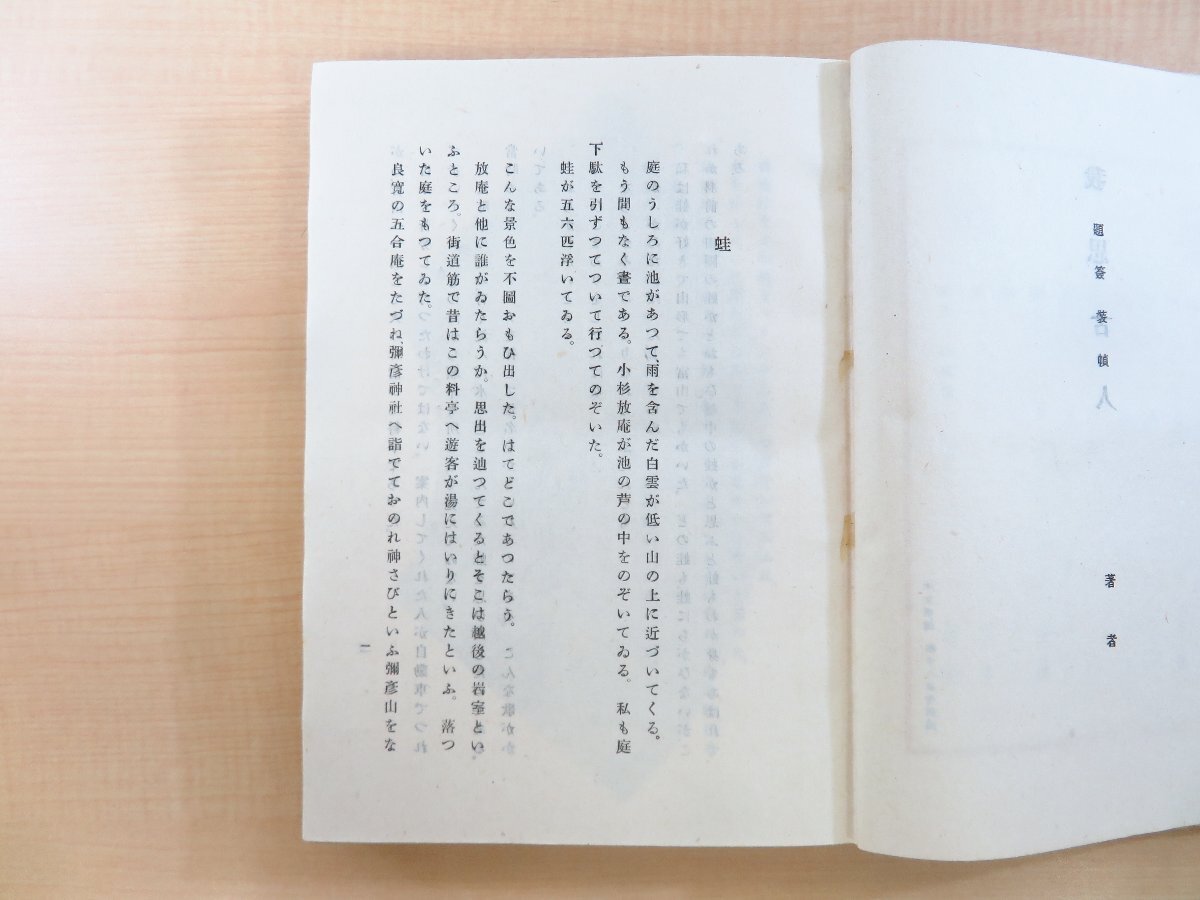 題簽裝幀　著者
蛙
庭のうしろに池があつて、雨を含んだ白雲が低い山の上に近づいてくる。
もう間もなく晝である。小杉放庵が池の芦の中をのぞいてゐる。私も庭
下駄を引ずつてついて行つてのぞいた。
蛙が五六匹浮いてゐる。
こんな景色を不圖おもひ出した。はてどこであつたらう。
放庵と他に誰がゐたらうか。思出を辿つてくるとそこは越後の岩室とい
ふところ。街道筋で昔はこの料亭へ遊客が湯にはいりにきたといふ。落つ
いた庭をもつてゐた。
良寛の五合庵をたづね、彌彥神社へ詣でておのれ神さびといふ彌彥山をな